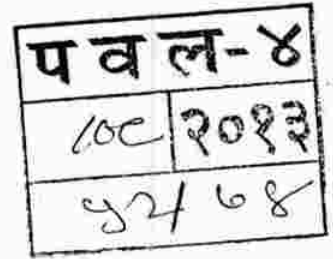 प व ल-४
२०१३
५२/७४